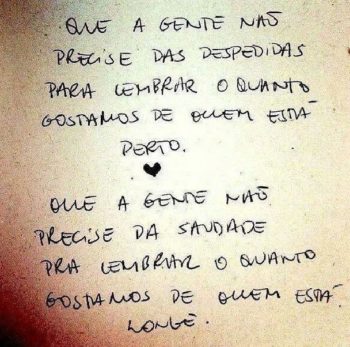 QUE A GENTE NÃO
PRECISE DAS DESPEDIDAS
PARA LEMBRAR O QUANTO
GOSTAMOS DE QUEM ESTÁ
PERTO.
QUE A GENTE NÃO
PRECISE DA SAUDADE
PRA LEMBRAR O QUANTO
GOSTAMOS DE QUEM ESTÁ
LONGE.